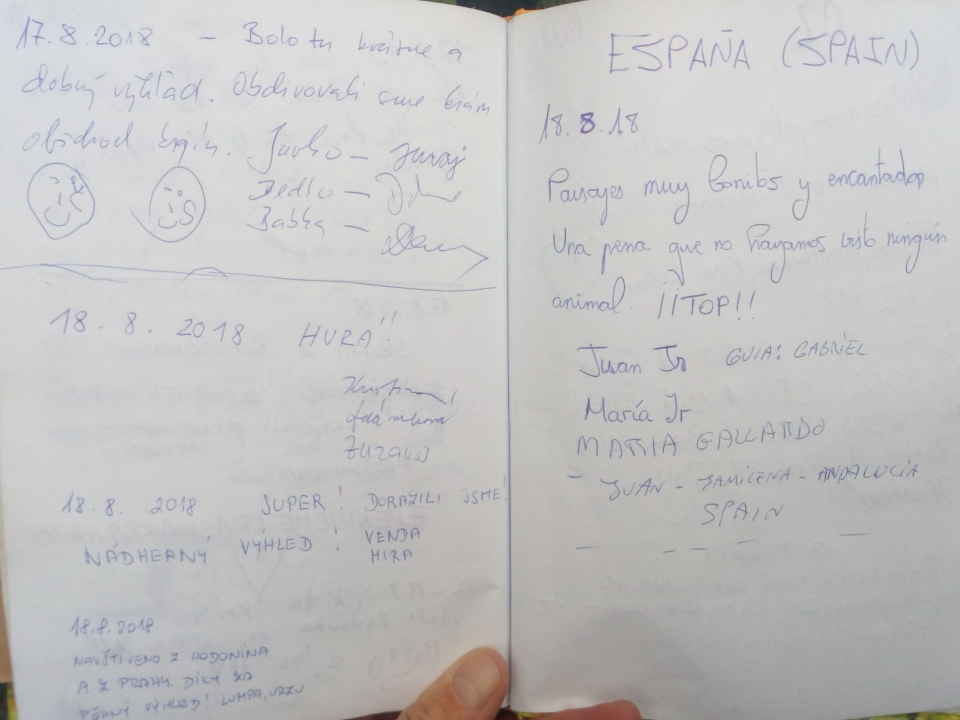 17.8.2018 – Bolo tu krásne a
dobrý výhľad. Obdivovali sme
obchod
Dedko –
Babka –
18. 8. 2018 HURÁ!!
ZUZANA
18.8. 2018 SUPER! DORAZILI JSME!
NÁDHERNÝ VÝHLED! VENDA
MIRA
18.8.2018
NAVŠTÍVENO Z HODONÍNA
A Z PRAHY. DÍKY ZA
PĚKNÝ VÝHLED!
ESPAÑA (SPAIN)
18.8.18
Paisajes muy bonitos y encantador.
Una pena que no hayamos visto ningún
animal. ¡¡TOP!!
Juan Jr GUIA: GABRIEL
María Jr
MARIA GALLARDO
– JUAN – JAMILENA – ANDALUCIA
SPAIN